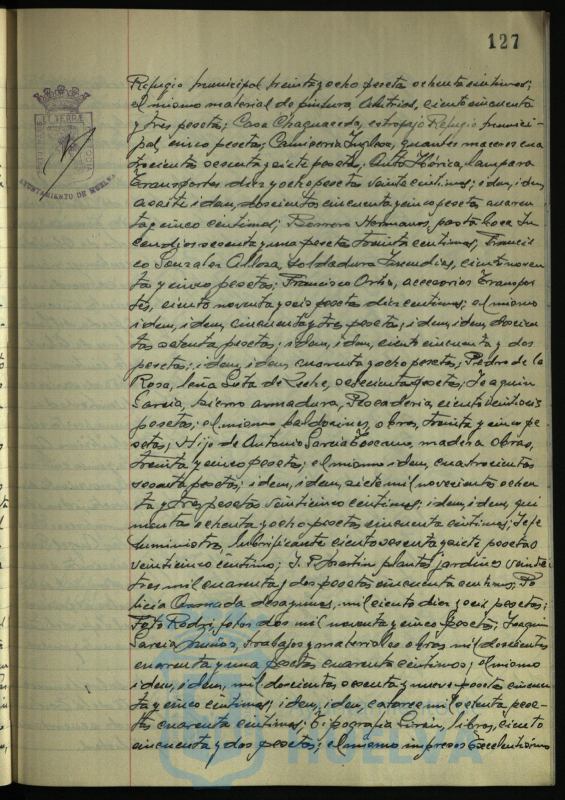 127
AYUNTAMIENTO DE HUELVA
Refugio municipal treinta y ocho pesetas ochenta centimos;
el mismo material de pintura, idem, ciento cincuenta
y tres pesetas; Casa Chaguaceda, estropajo Refugio munici-
pal, cinco pesetas; Camiseria Inglesa, guantes maceros cua
trocientas sesenta y siete pesetas; Auto Ibérica, lampara
Transportes diez y ocho pesetas veinte centimos; idem, idem
aceite idem, doscientas cincuenta y cinco pesetas cuaren-
ta y cinco centimos; Borrero Hermanos, pasta boca In
cendios sesenta y una pesetas treinta centimos; Francis
co Gonzalez soldadura Incendios, ciento noven
ta y cinco pesetas; Francisco Ortiz, accesorios Transpor
tes, ciento noventa y seis pesetas diez centimos; el mismo
idem, idem, cincuenta y tres pesetas; idem, idem, doscien
tas setenta pesetas; idem, idem, ciento cincuenta y dos
pesetas; idem, idem, cuarenta y ocho pesetas; Pedro de la
Rosa, leña Gota de Leche, seiscientas pesetas; Joaquin
Garcia, hierro armadura, Pescaderia, ciento veintiseis
pesetas; el mismo baldosines, obras, treinta y cinco pe-
setas; Hijo de Antonio Garcia Toscano, madera obras,
treinta y cinco pesetas; el mismo idem, cuatrocientas
sesenta pesetas; idem, idem, siete mil novecientas ochen
ta y tres pesetas veinticinco centimos; idem, idem, qui
nientas ochenta y ocho pesetas cincuenta centimos; Jefe
suministros, lubrificante ciento sesenta y siete pesetas
veinticinco centimos; J. P. Martin plantas jardines veinti
tres mil cuarenta y dos pesetas cincuenta centimos; Po
licia Armada desayunos, mil ciento diez y seis pesetas;
Foto Rodri, fotos dos mil noventa y cinco pesetas; Joaquin
Garcia Muñoz, trabajos y materiales obras mil doscientas
cuarenta y una pesetas cuarenta centimos; el mismo
idem, idem, mil doscientas sesenta y nueve pesetas cincuen
ta y cinco centimos; idem, idem, catorce mil ochenta pese-
tas cuarenta centimos; Tipografia Girón, libros, ciento
cincuenta y dos pesetas; el mismo impresos Excelentisimo
HUELVA